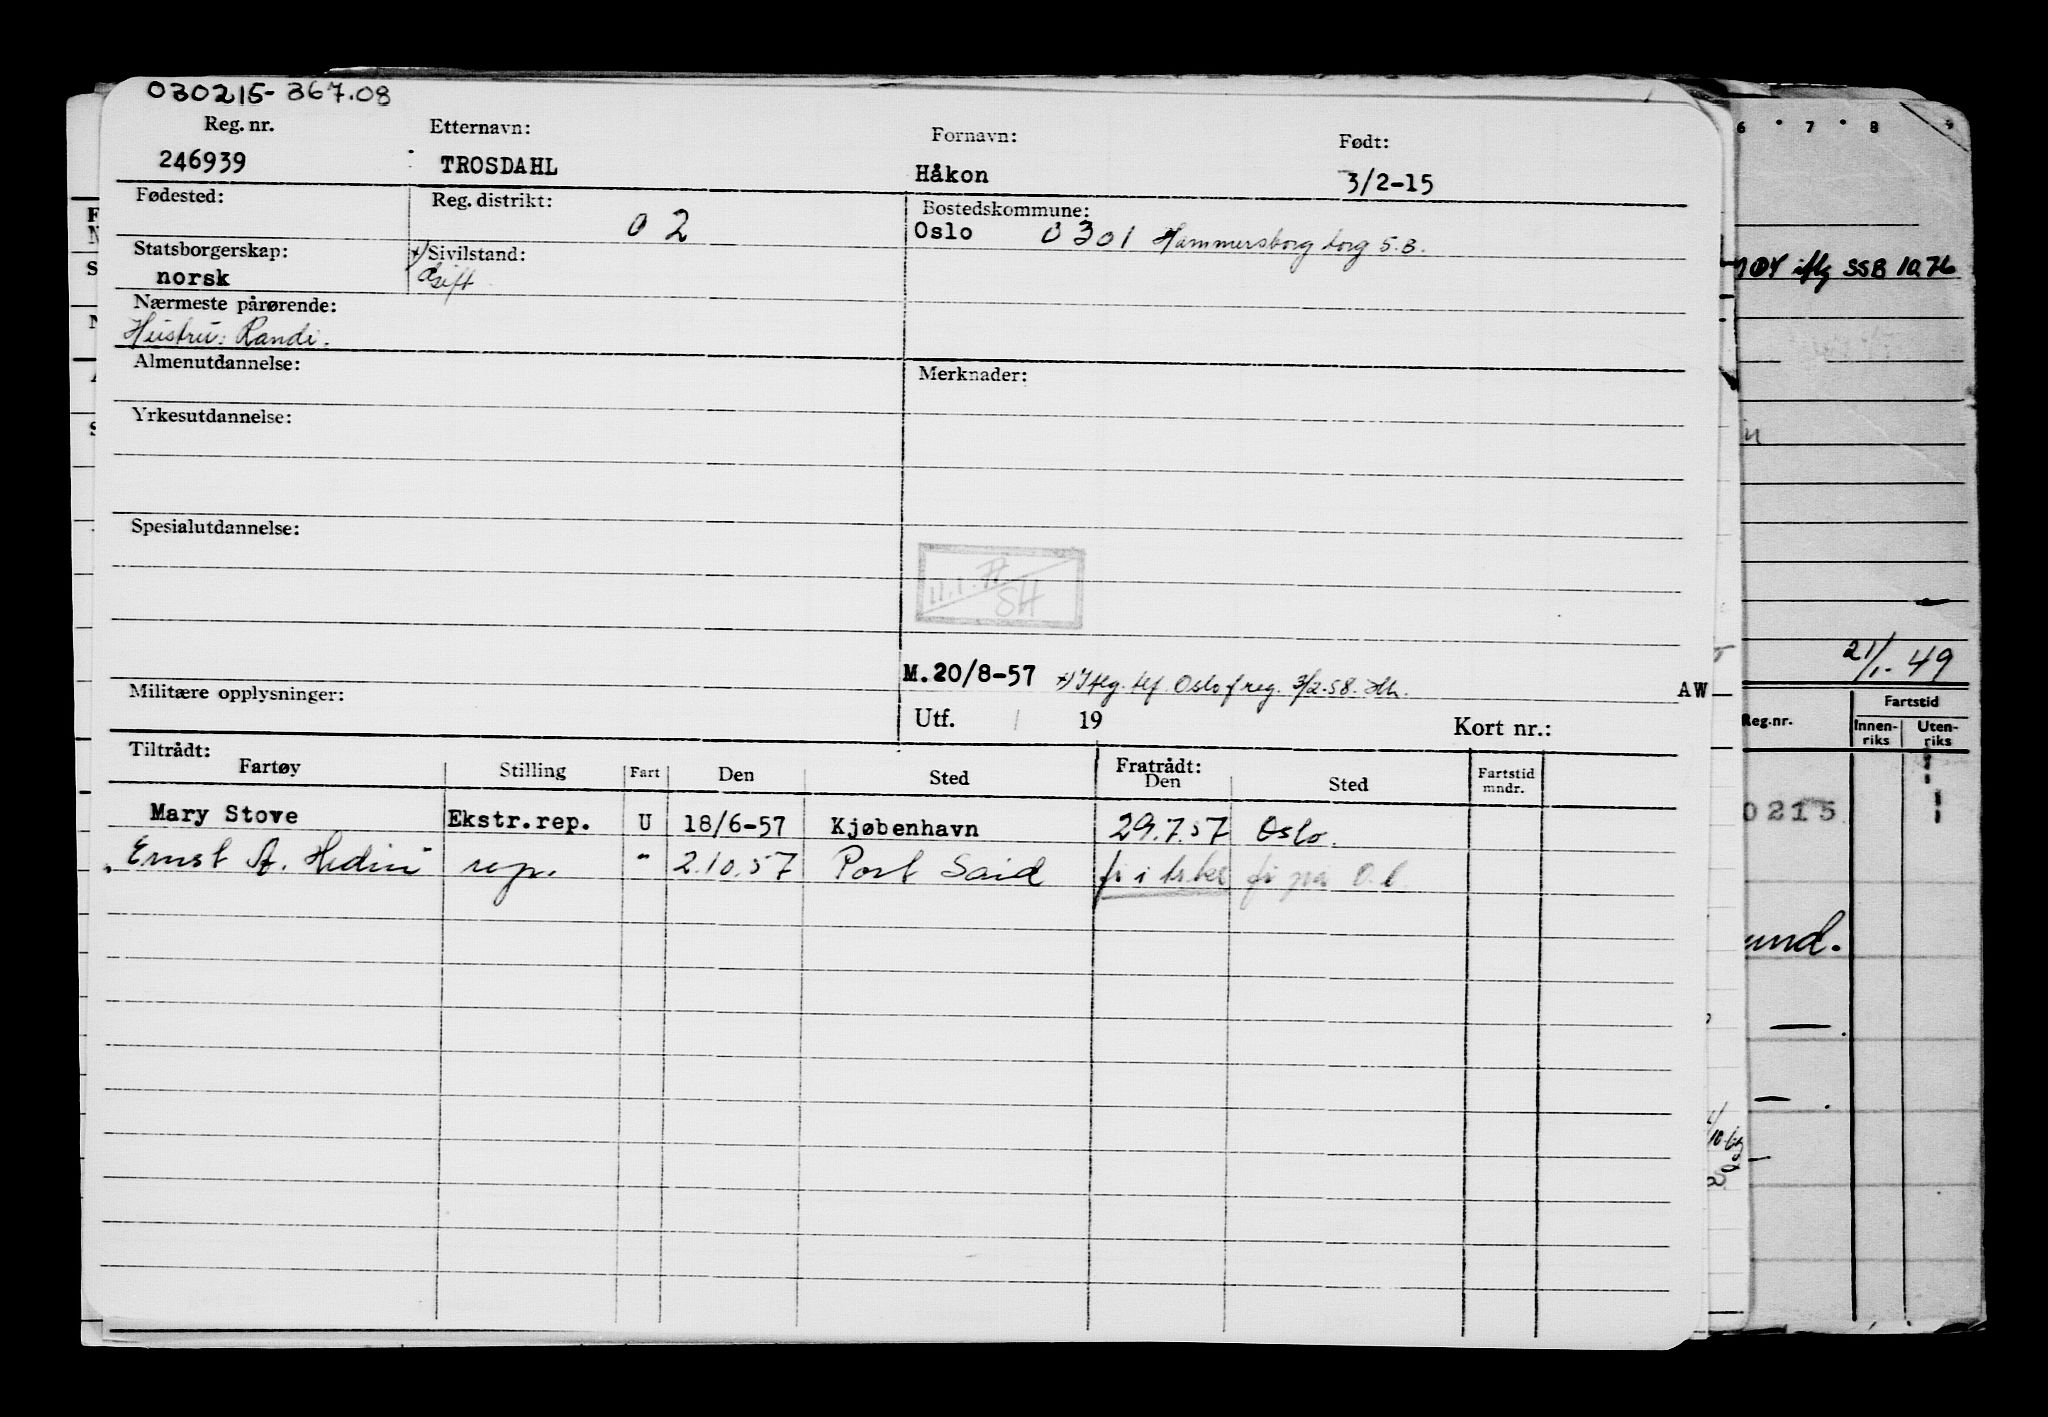 030215-367.08
Reg. nr. Etternavn: Fornavn: Født:
246939 TROSDAHL Håkon 3/2-15
Fødested: Reg. distrikt: Bostedskommune:
02 Oslo 0301 Hammersborg torg 5.B.
Statsborgerskap: x) Sivilstand:
norsk Gift
Nærmeste pårørende:
Hustru: Randi.
Almenutdannelse: Merknader:
Yrkesutdannelse:
Spesialutdannelse:
11.1.77
SH
M.20/8-57 x) Iflg. tlf. Oslo freg. 3/2-58.
Militære opplysninger: AW
Utf. 19 Kort nr.:
Tiltrådt: Fratrådt:
Fartøy Stilling Fart Den Sted Den Sted Fartstid mndr.
Mary Stove Ekstr.rep. U 18/6-57 Kjøbenhavn 29.7.57 Oslo.
Ernst A. Hedin rep. " 2.10.57 Port Said
6 7 8
iflg SSB 10.76
21/1-49
Reg.nr. Fartstid
Innen-riks Uten-riks
0215
und.